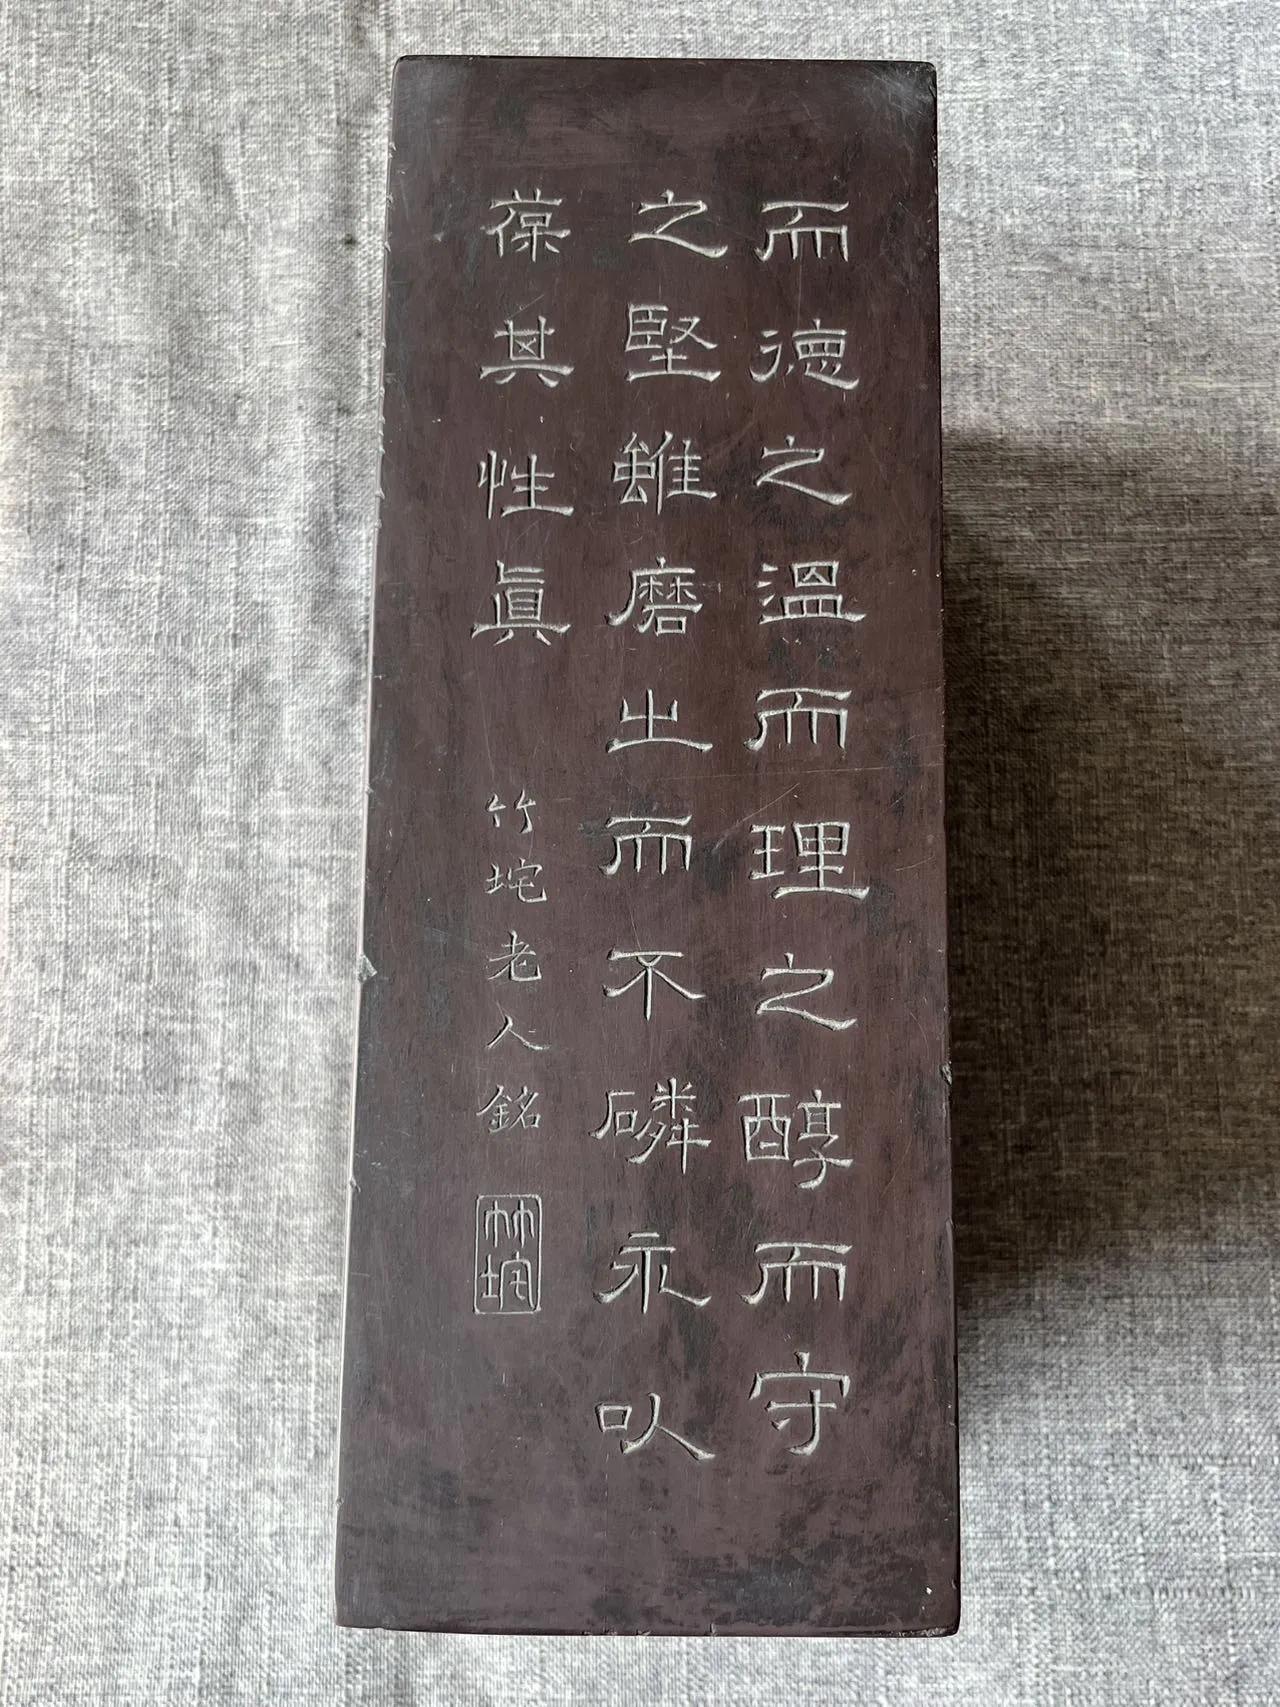 而德之溫而理之醇而守
之堅雖磨㞢而不磷永㕥
葆其性眞 竹垞老人銘
竹垞